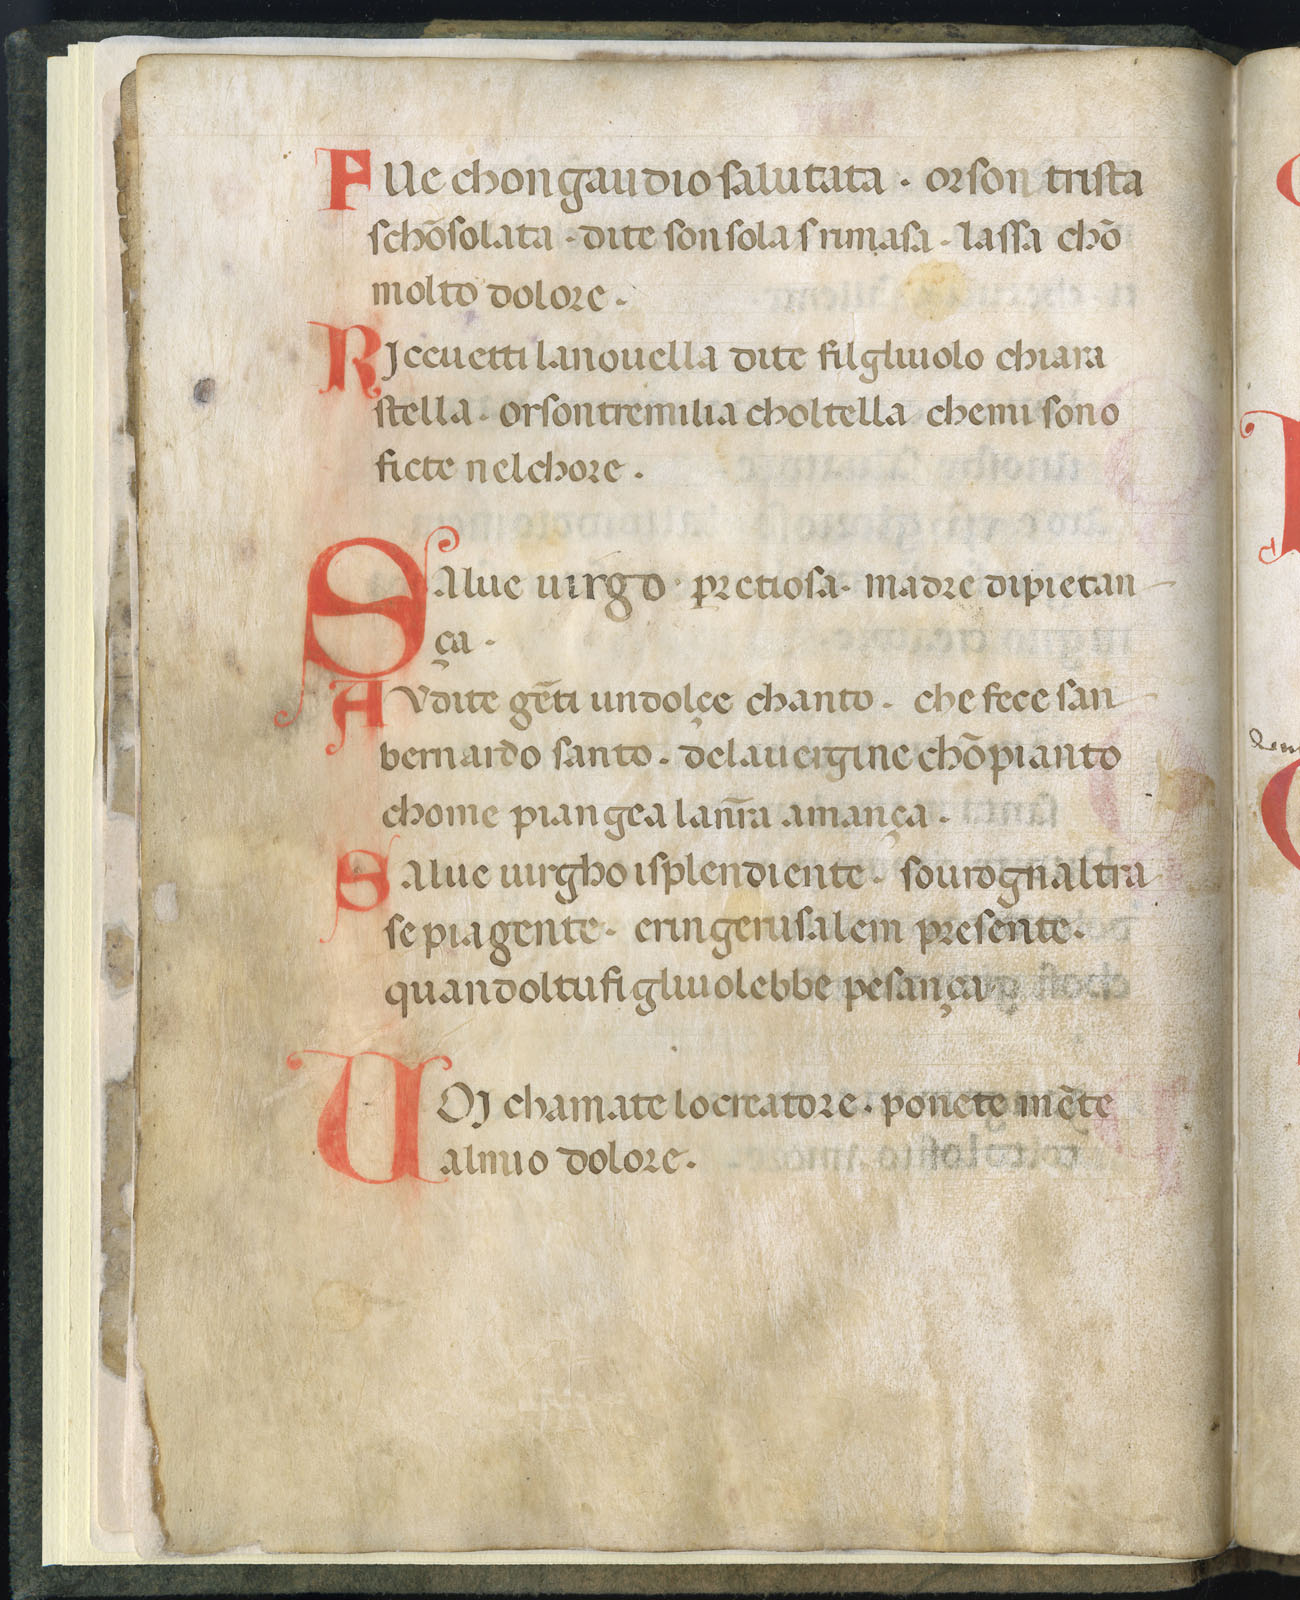 FUe chongaudio salutata · orson trista
schōsolata · dite sonsola srimasa · lassa chō
molto dolore ·
RJceuetti lanouella dite filgluiolo chiara
stella · orsontremilia choltella chemi sono
ficte nelchore ·
SAlue uirgo · pretiosa · madre dipietan
ça ·
AVdite gēti undolçe chanto · che fece san
bernardo santo · delauergine chōpianto
chome piangea lanr̄a amança ·
SAlue uirgho isplendiente · sourognaltra
se piagente · eringerusalem presente ·
quandoltufigluiolebbe pesança
UOJ chamate locreatore · ponete mēte
almio dolore ·